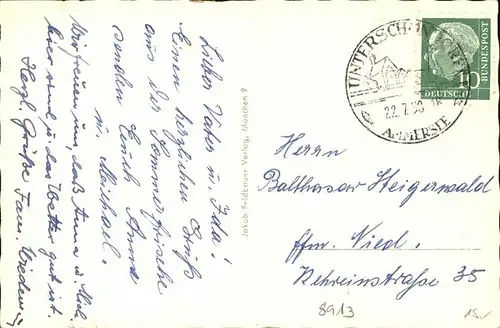 Lieber Vater u. Ida!
Einen herzlichen Gruß
aus der Sommerfrische
senden Euch Anna
u. Michael.
Wir freuen uns, daß Anna u. Mich.
hier sind u. das Wetter gut ist.
Herzl. Grüße Fam.
Jakob Feldbauer Verlag, München 9
UNTERSCHONDORF
22.7.58
AMMERSEE
10
DEUTSCHE
BUNDESPOST
Herrn
Balthasar Steigerwald
ffm. Nied.
Rehreinstraße 35
8913
15.-